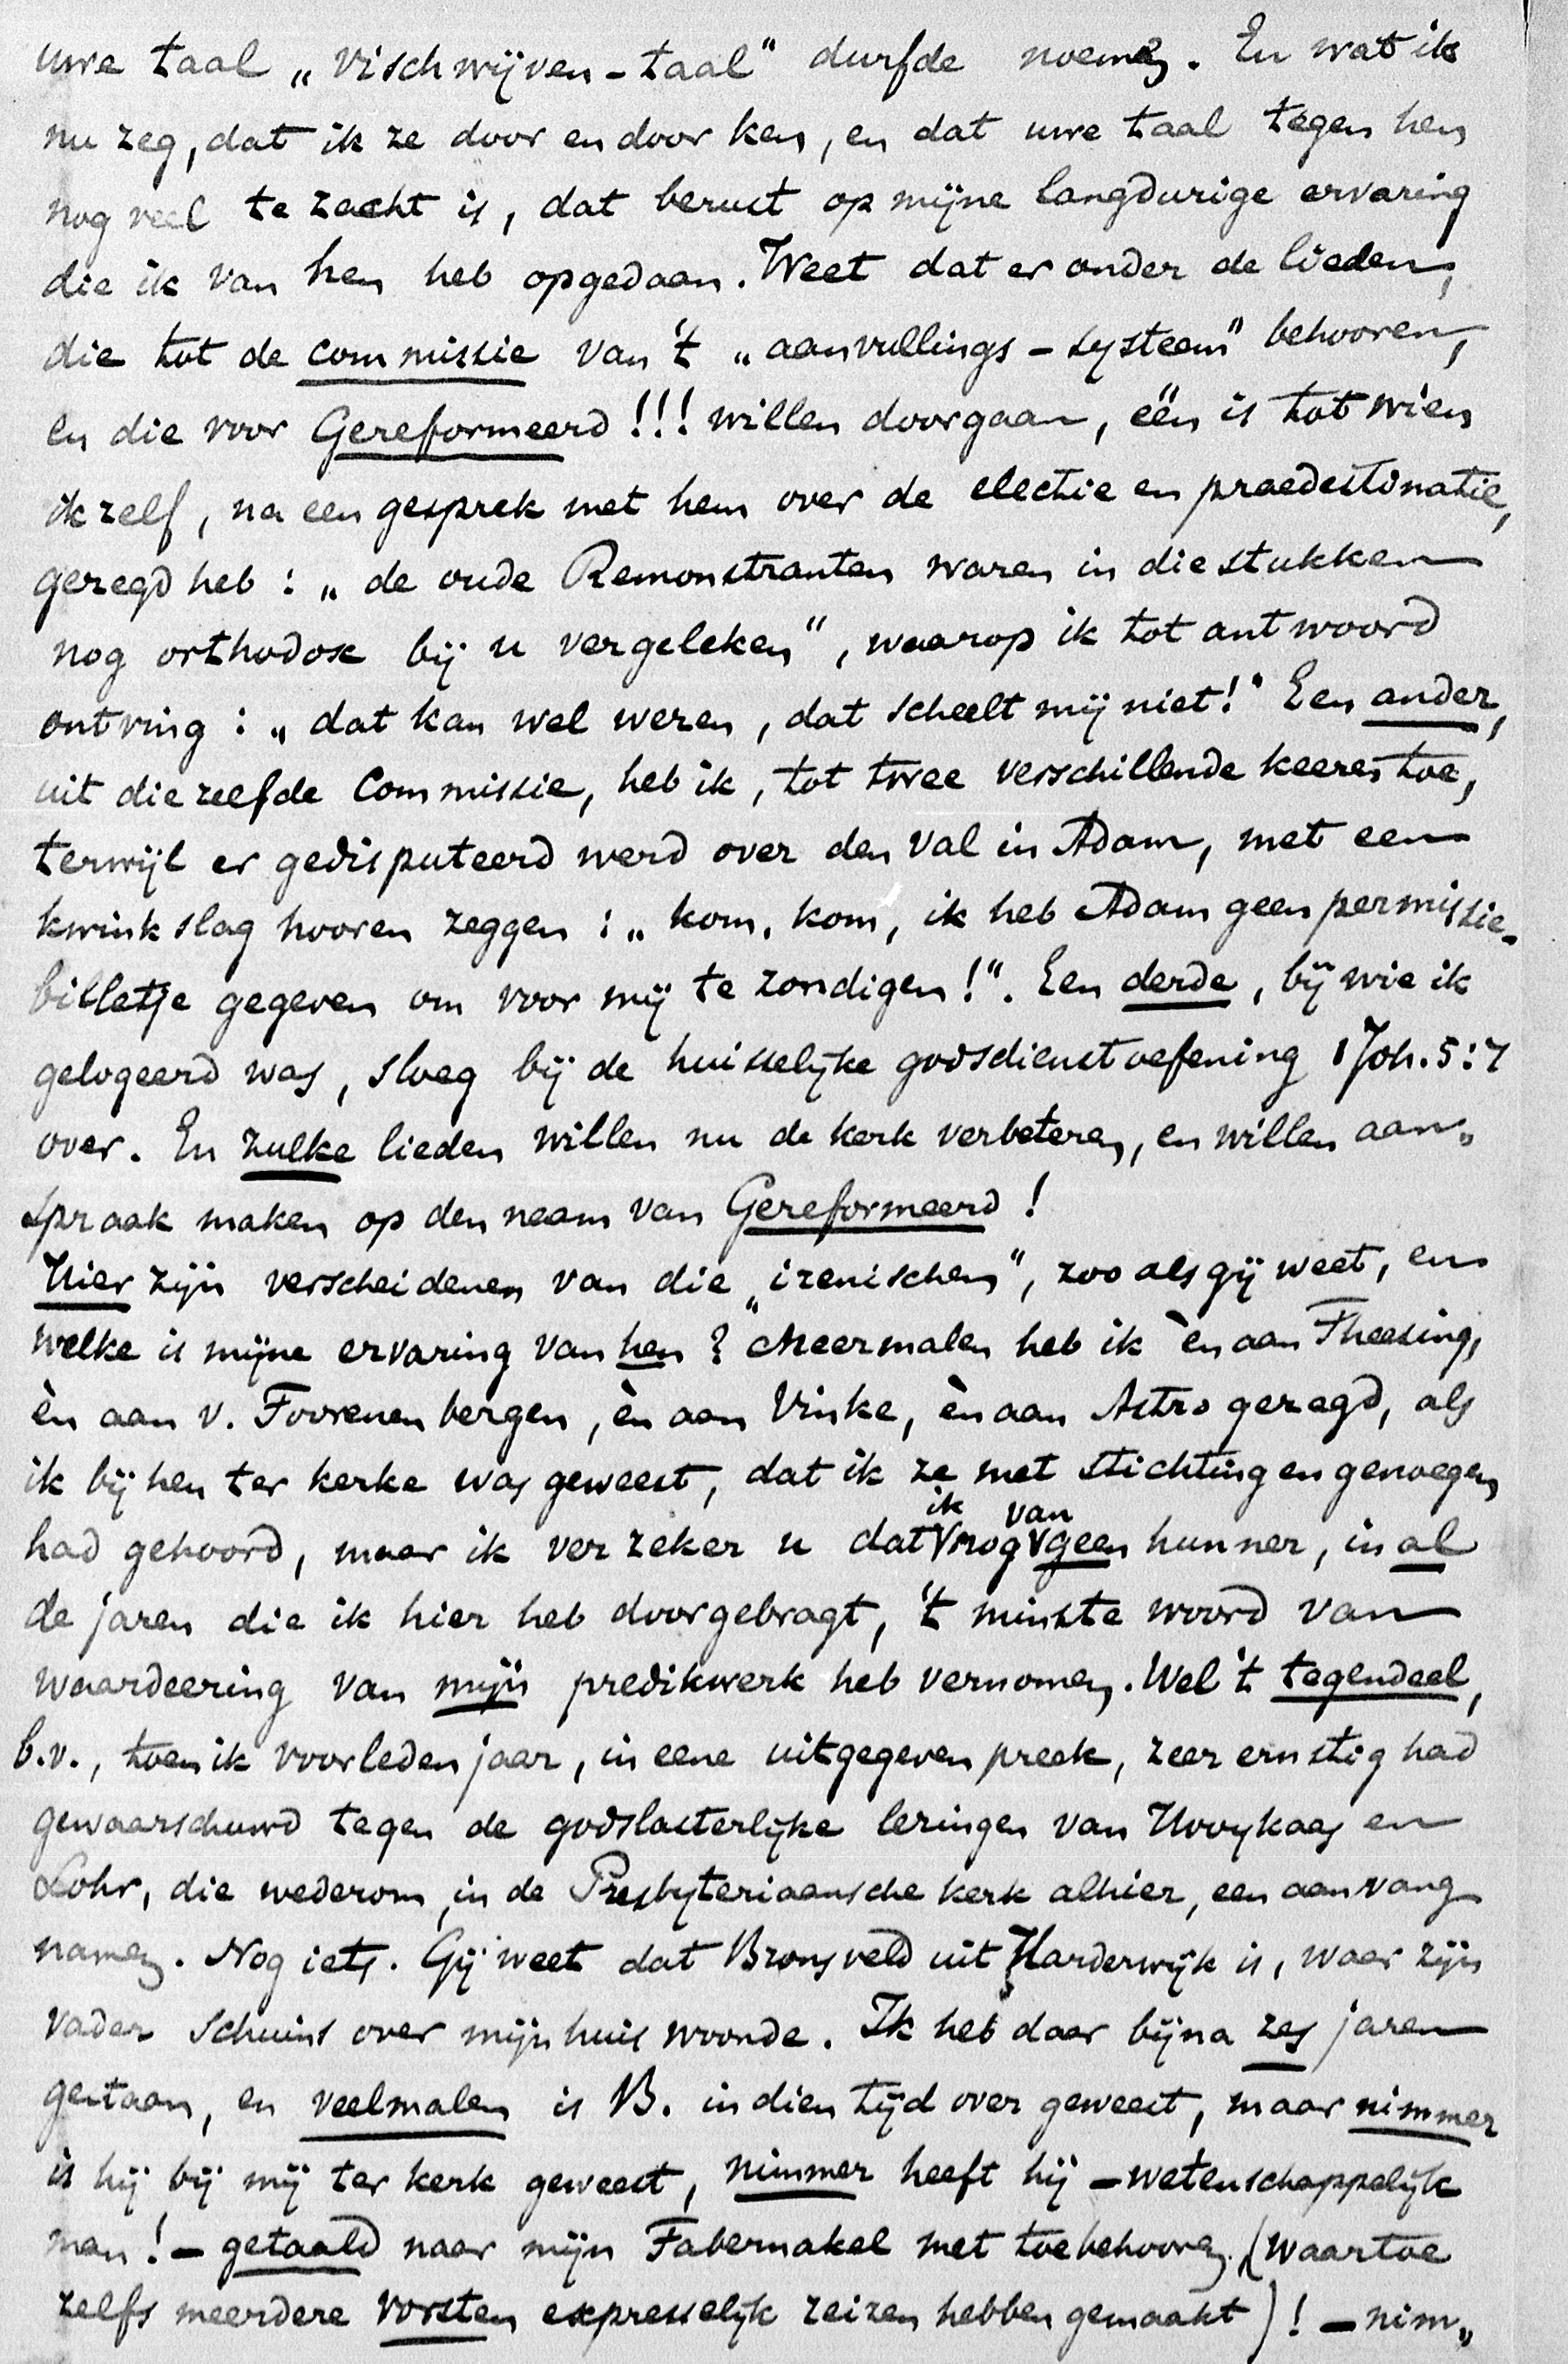 uwe taal „vischwijven-taal" durfde noemen. En wat ik
nu zeg, dat ik ze door en door ken, en dat uwe taal tegen hen
nog veel te zacht is, dat berust op mijne langdurige ervaring
die ik van hen heb opgedaan. Weet dat er onder de lieden,
die tot de commissie van 't „aanvullings-systeem" behooren,
en die voor Gereformeerd!!! willen doorgaan, één is tot wien
ik zelf, na een gesprek met hem over de electie en praedestinatie,
gezegd heb: „de oude Remonstranten waren in die stukken
nog orthodox bij u vergeleken", waarop ik tot antwoord
ontving: „dat kan wel wezen, dat scheelt mij niet!" Een ander,
uit diezelfde Commissie, heb ik, tot twee verschillende keeren toe,
terwijl er gedisputeerd werd over den val in Adam, met een
kwinkslag hooren zeggen: „kom, kom, ik heb Adam geen permissie-
billetje gegeven om voor mij te zondigen!". Een derde, bij wie ik
gelogeerd was, sloeg bij de huisselijke godsdienstoefening 1 Joh. 5:7
over. En zulke lieden willen nu de kerk verbeteren, en willen aan„
spraak maken op den naam van Gereformeerd!
Hier zijn verscheidenen van die „irenischen", zoo als gij weet, en
welke is mijne ervaring van hen? Meermalen heb ik èn aan Theesing,
èn aan v. Toorenenbergen, èn aan Vinke, èn aan Astro gezegd, als
ik bij hen ter kerke was geweest, dat ik ze met stichting en genoegen
had gehoord, maar ik verzeker u dat ik nog van geen hunner, in al
de jaren die ik hier heb doorgebragt, 't minste woord van
waardeering van mijn predikwerk heb vernomen. Wel 't tegendeel,
b.v., toen ik voorleden jaar, in eene uitgegeven preek, zeer ernstig had
gewaarschuwd tegen de godslasterlijke leringen van Hooykaas en
Lohr, die wederom, in de Presbyteriaansche kerk alhier, een aanvang
namen. Nog iets. Gij weet dat Bronsveld uit Harderwijk is, waar zijn
vader schuins over mijn huis woonde. Ik heb daar bijna zes jaren
gestaan, en veelmalen is B. in dien tijd over geweest, maar nimmer
is hij bij mij ter kerk geweest, nimmer heeft hij – wetenschappelijk
man! – getaald naar mijn Tabernakel met toebehooren (waartoe
zelfs meerdere vorsten expresselijk reizen hebben gemaakt)! – nim„